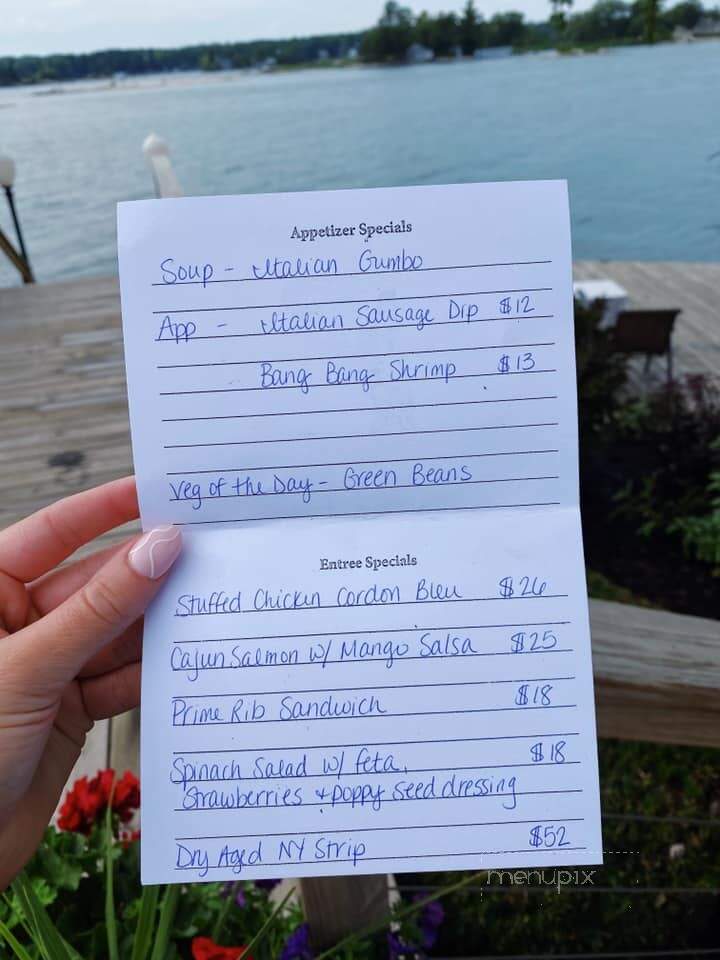 Appetizer Specials
Soup - Italian Gumbo
App - Italian Sausage Dip $12
Bang Bang Shrimp $13
Veg of the Day - Green Beans
Entree Specials
Stuffed Chicken Cordon Bleu $26
Cajun Salmon w/ Mango Salsa $25
Prime Rib Sandwich $18
Spinach Salad w/ feta, $18
Strawberries + poppy seed dressing
Dry Aged NY Strip $52
menupix